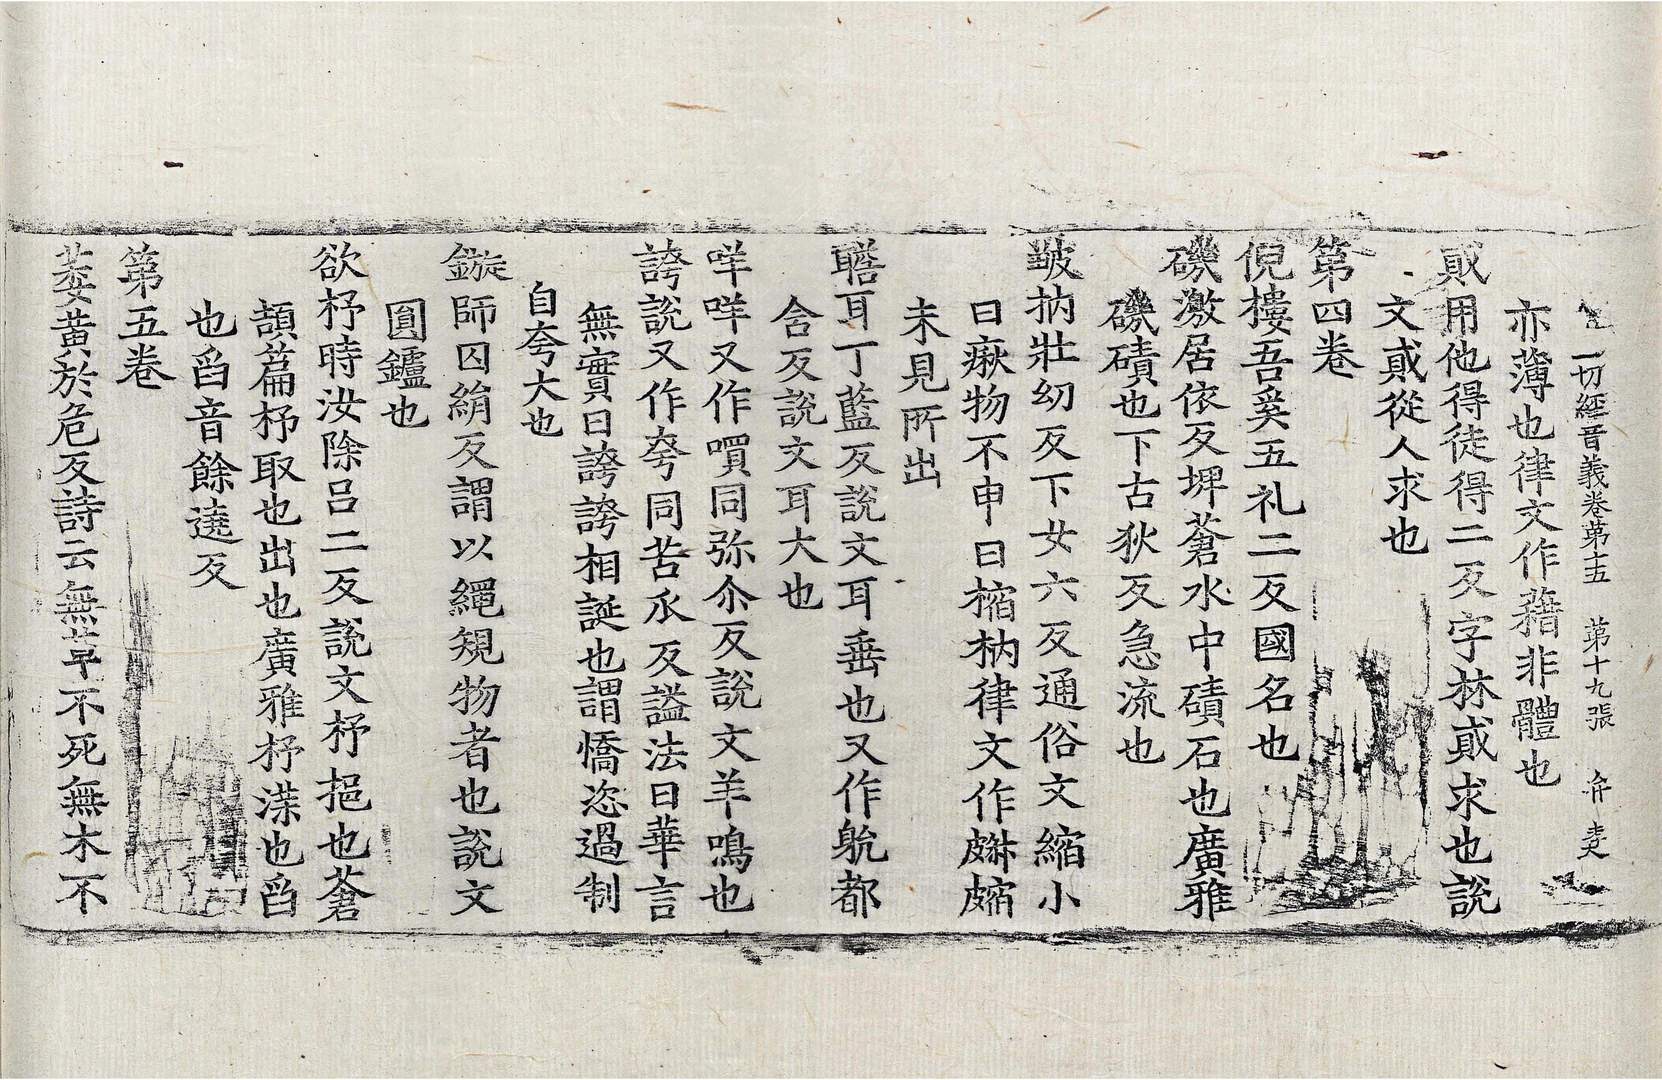 一切經音義卷第十五　第十九張　弁
亦薄也律文作藉非體也
貣用他得徒得二反字林貣求也說
文貣從人求也
第四卷
倪樓吾奚五礼二反國名也
磯激居依反埤蒼水中磧石也廣雅
磯磧也下古狄反急流也
皺抐壯幼反下女六反通俗文縮小
曰瘷物不申曰樎枘律文作
未見所出
聸耳丁藍反說文耳垂也又作躭都
含反說文耳大也
咩咩又作嘪同弥尒反說文羊鳴也
誇說又作夸同苦瓜反謚法曰華言
無實曰誇誇相誕也謂憍恣過制
自夸大也
鏇師囚絹反謂以繩規物者也說文
圓鑪也
欲杼時汝除呂二反說文杼挹也蒼
頡篇杼取也出也廣雅杼渫也舀
也舀音餘遶反
第五卷
萎黃於危反詩云無草不死無木不